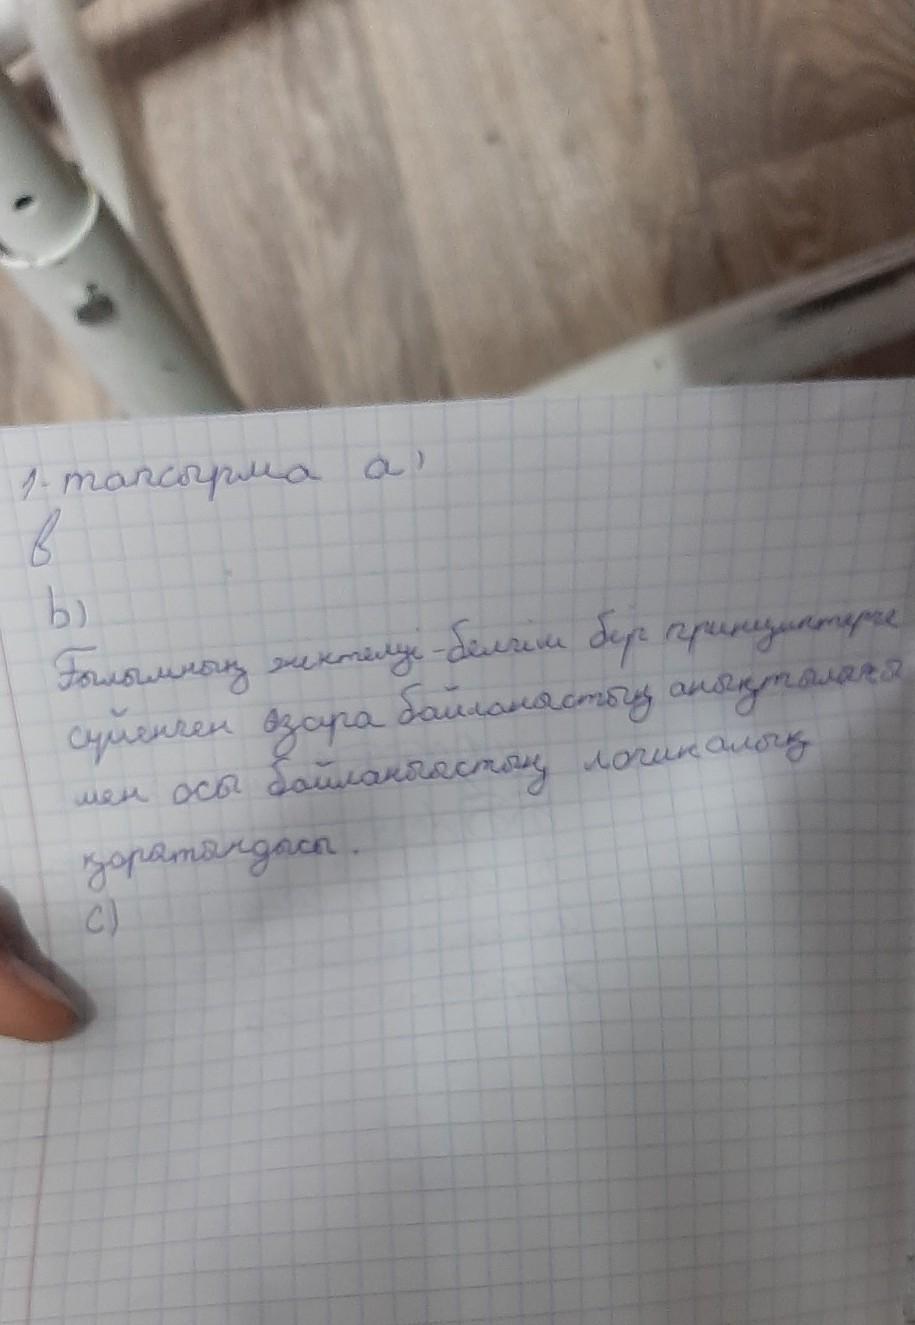 1-тапсырма а)
в
b)
Ғылымның жіктелуі-белгілі бір принциптерге
сүйенген өзара байланыстың анықталаны
мен осы байланыстың логикалық
қорытындысы.
c)